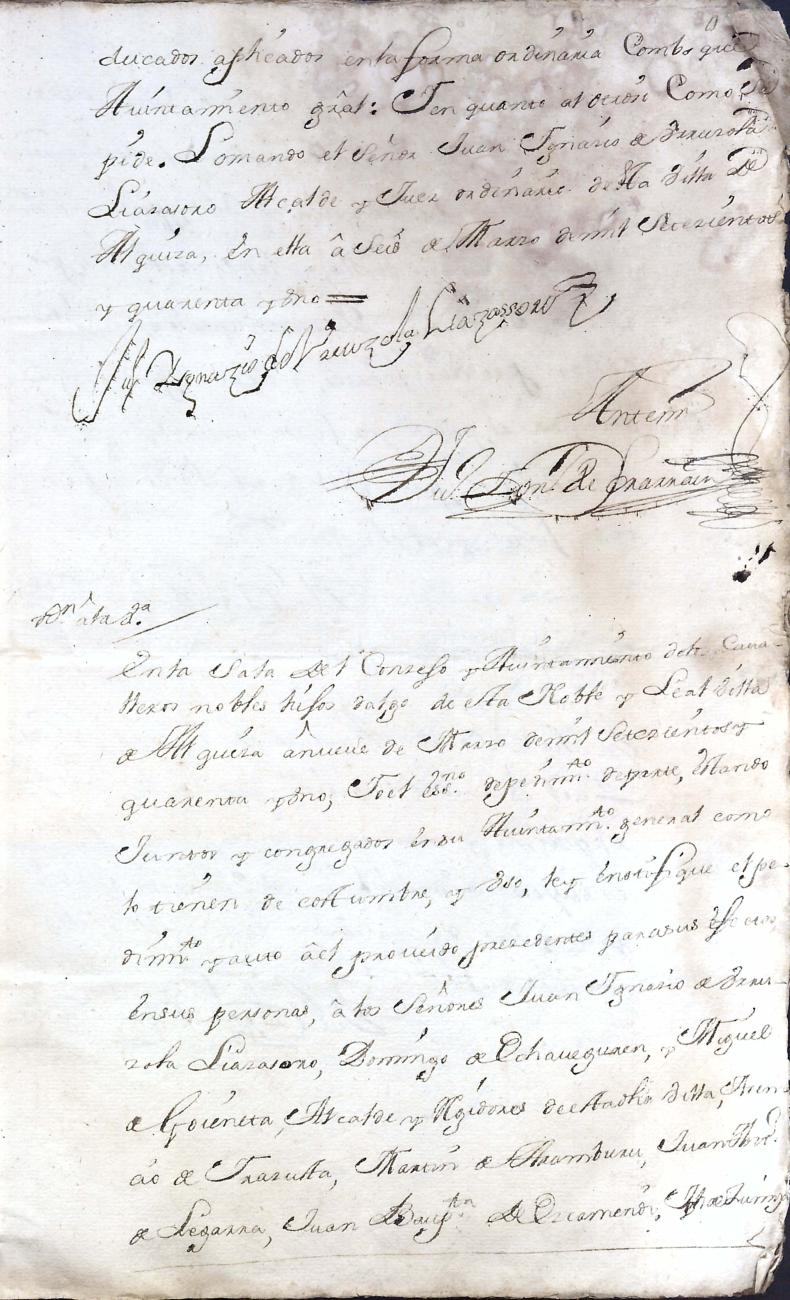 ducados aplicados en la forma ordinaria Combo que
Aiuntamiento gral: I en quanto al otrosi Como se
pide. Lo mando el Señor Juan Ignacio de Vrruzola
Liazasoro Alcalde y Juez ordinario de esta Villa de
Alquiza, en ella â Seis de Marzo de mil Setezientos
y quarenta y vno =
Ju Ignazio de Vrruzola Liazassoro
Antemi
Ju. Ign. de Larrain
Nn â la Va.
En la Sala del Conzejo y Aiuntamiento de los Cava-
lleros nobles hijos dalgo de esta Noble y Leal Villa
de Alquiza â nueue de Marzo de mil Setezientos y
quarenta y vno, Io el Essno. de pedimto. de parte, estando
Juntos y congregados en su Aiuntamto. general como
lo tienen de costumbre, y vso, ley è notifique el pe-
dimto y auto â el proueido prezedentes para sus efectos
en sus personas, â los Señores Juan Ignazio de Vrru-
zola Liazasoro, Domingo de Echaueguren, y Miguel
de Goieneta, Alcalde y Rexidores de esta dha Villa,
de Irazusta, Martin de Aramburu, Juan
de Legarra, Juan Bauptta. de Orcamendi,